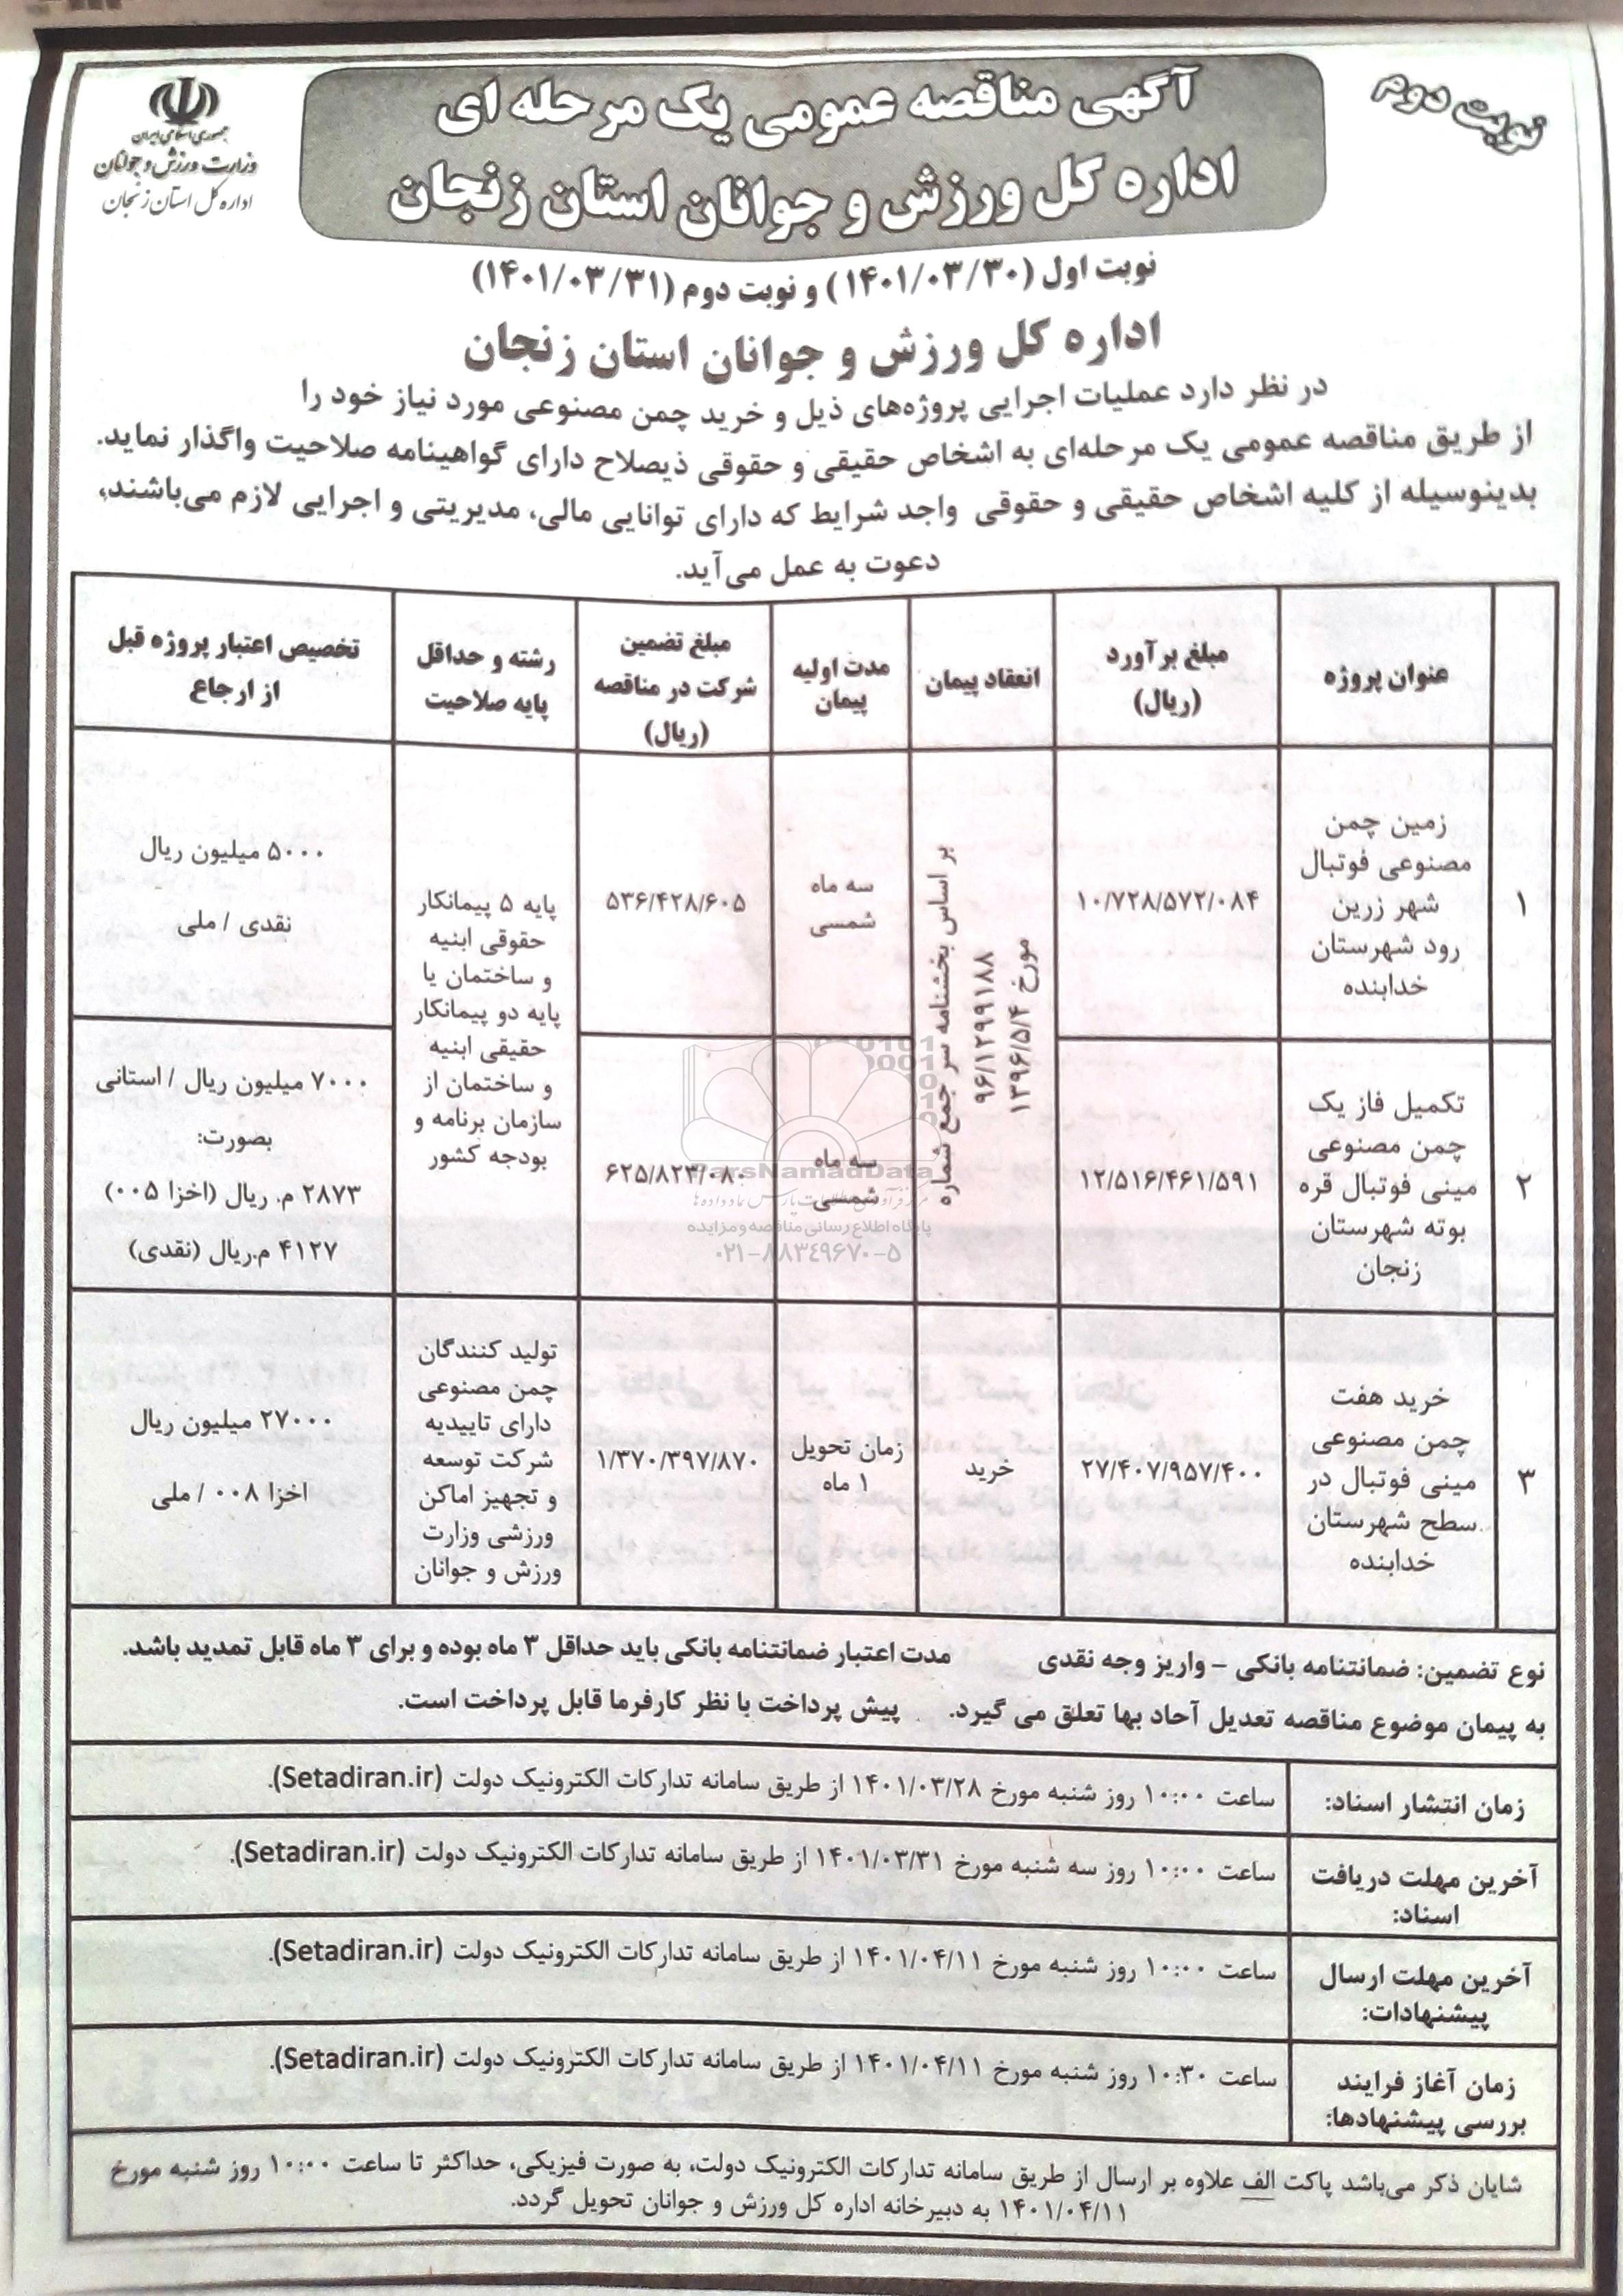 نوبت دوم
آگهی مناقصه عمومی یک مرحله ای
اداره کل ورزش و جوانان استان زنجان
جمهوری اسلامی ایران
وزارت ورزش و جوانان
اداره کل استان زنجان
نوبت اول (۱۴۰۱/۰۳/۳۰) و نوبت دوم (۱۴۰۱/۰۳/۳۱)
اداره کل ورزش و جوانان استان زنجان
در نظر دارد عملیات اجرایی پروژه‌های ذیل و خرید چمن مصنوعی مورد نیاز خود را
از طریق مناقصه عمومی یک مرحله‌ای به اشخاص حقیقی و حقوقی ذیصلاح دارای گواهینامه صلاحیت واگذار نماید.
بدینوسیله از کلیه اشخاص حقیقی و حقوقی واجد شرایط که دارای توانایی مالی، مدیریتی و اجرایی لازم می‌باشند،
دعوت به عمل می‌آید.
عنوان پروژه
مبلغ برآورد
(ریال)
انعقاد پیمان
مدت اولیه
پیمان
مبلغ تضمین
شرکت در مناقصه
(ریال)
رشته و حداقل
پایه صلاحیت
تخصیص اعتبار پروژه قبل
از ارجاع
۱
زمین چمن
مصنوعی فوتبال
شهر زرین
رود شهرستان
خدابنده
۱۰/۷۲۸/۵۷۲/۰۸۴
بر اساس بخشنامه سر جمع شماره
۹۶/۱۲۹۹۱۸۸
مورخ ۱۳۹۶/۵/۴
سه ماه
شمسی
۵۳۶/۴۲۸/۶۰۵
پایه ۵ پیمانکار
حقوقی ابنیه
و ساختمان یا
پایه دو پیمانکار
حقیقی ابنیه
و ساختمان از
سازمان برنامه و
بودجه کشور
۵۰۰۰ میلیون ریال
نقدی / ملی
۲
تکمیل فاز یک
چمن مصنوعی
مینی فوتبال قره
بوته شهرستان
زنجان
۱۲/۵۱۶/۴۶۱/۵۹۱
سه ماه
شمسی
۶۲۵/۸۲۳/۰۸۰
۷۰۰۰ میلیون ریال / استانی
بصورت:
۲۸۷۳ م. ریال (اخزا ۰۰۵)
۴۱۲۷ م.ریال (نقدی)
۳
خرید هفت
چمن مصنوعی
مینی فوتبال در
سطح شهرستان
خدابنده
۲۷/۴۰۷/۹۵۷/۴۰۰
خرید
زمان تحویل
۱ ماه
۱/۳۷۰/۳۹۷/۸۷۰
تولید کنندگان
چمن مصنوعی
دارای تاییدیه
شرکت توسعه
و تجهیز اماکن
ورزشی وزارت
ورزش و جوانان
۲۷۰۰۰ میلیون ریال
اخزا ۰۰۸ / ملی
ParsNamadData
پایگاه اطلاع رسانی مناقصه و مزایده
۰۲۱-۸۸۳۴۹۶۷۰-۵
نوع تضمین: ضمانتنامه بانکی – واریز وجه نقدی مدت اعتبار ضمانتنامه بانکی باید حداقل ۳ ماه بوده و برای ۳ ماه قابل تمدید باشد.
به پیمان موضوع مناقصه تعدیل آحاد بها تعلق می گیرد. پیش پرداخت با نظر کارفرما قابل پرداخت است.
زمان انتشار اسناد:
ساعت ۱۰:۰۰ روز شنبه مورخ ۱۴۰۱/۰۳/۲۸ از طریق سامانه تدارکات الکترونیک دولت (Setadiran.ir).
آخرین مهلت دریافت
اسناد:
ساعت ۱۰:۰۰ روز سه شنبه مورخ ۱۴۰۱/۰۳/۳۱ از طریق سامانه تدارکات الکترونیک دولت (Setadiran.ir).
آخرین مهلت ارسال
پیشنهادات:
ساعت ۱۰:۰۰ روز شنبه مورخ ۱۴۰۱/۰۴/۱۱ از طریق سامانه تدارکات الکترونیک دولت (Setadiran.ir).
زمان آغاز فرایند
بررسی پیشنهادها:
ساعت ۱۰:۳۰ روز شنبه مورخ ۱۴۰۱/۰۴/۱۱ از طریق سامانه تدارکات الکترونیک دولت (Setadiran.ir).
شایان ذکر می‌باشد پاکت الف علاوه بر ارسال از طریق سامانه تدارکات الکترونیک دولت، به صورت فیزیکی، حداکثر تا ساعت ۱۰:۰۰ روز شنبه مورخ
۱۴۰۱/۰۴/۱۱ به دبیرخانه اداره کل ورزش و جوانان تحویل گردد.